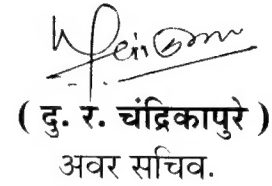 ( दु. र. चंद्रिकापुरे )
अवर सचिव.